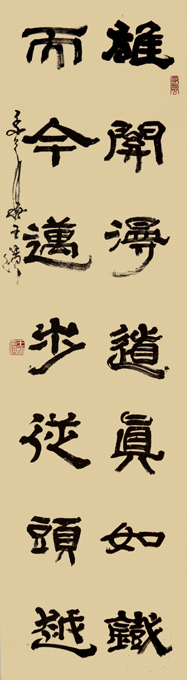 雄關漫道眞如鐵
而今邁步從頭越